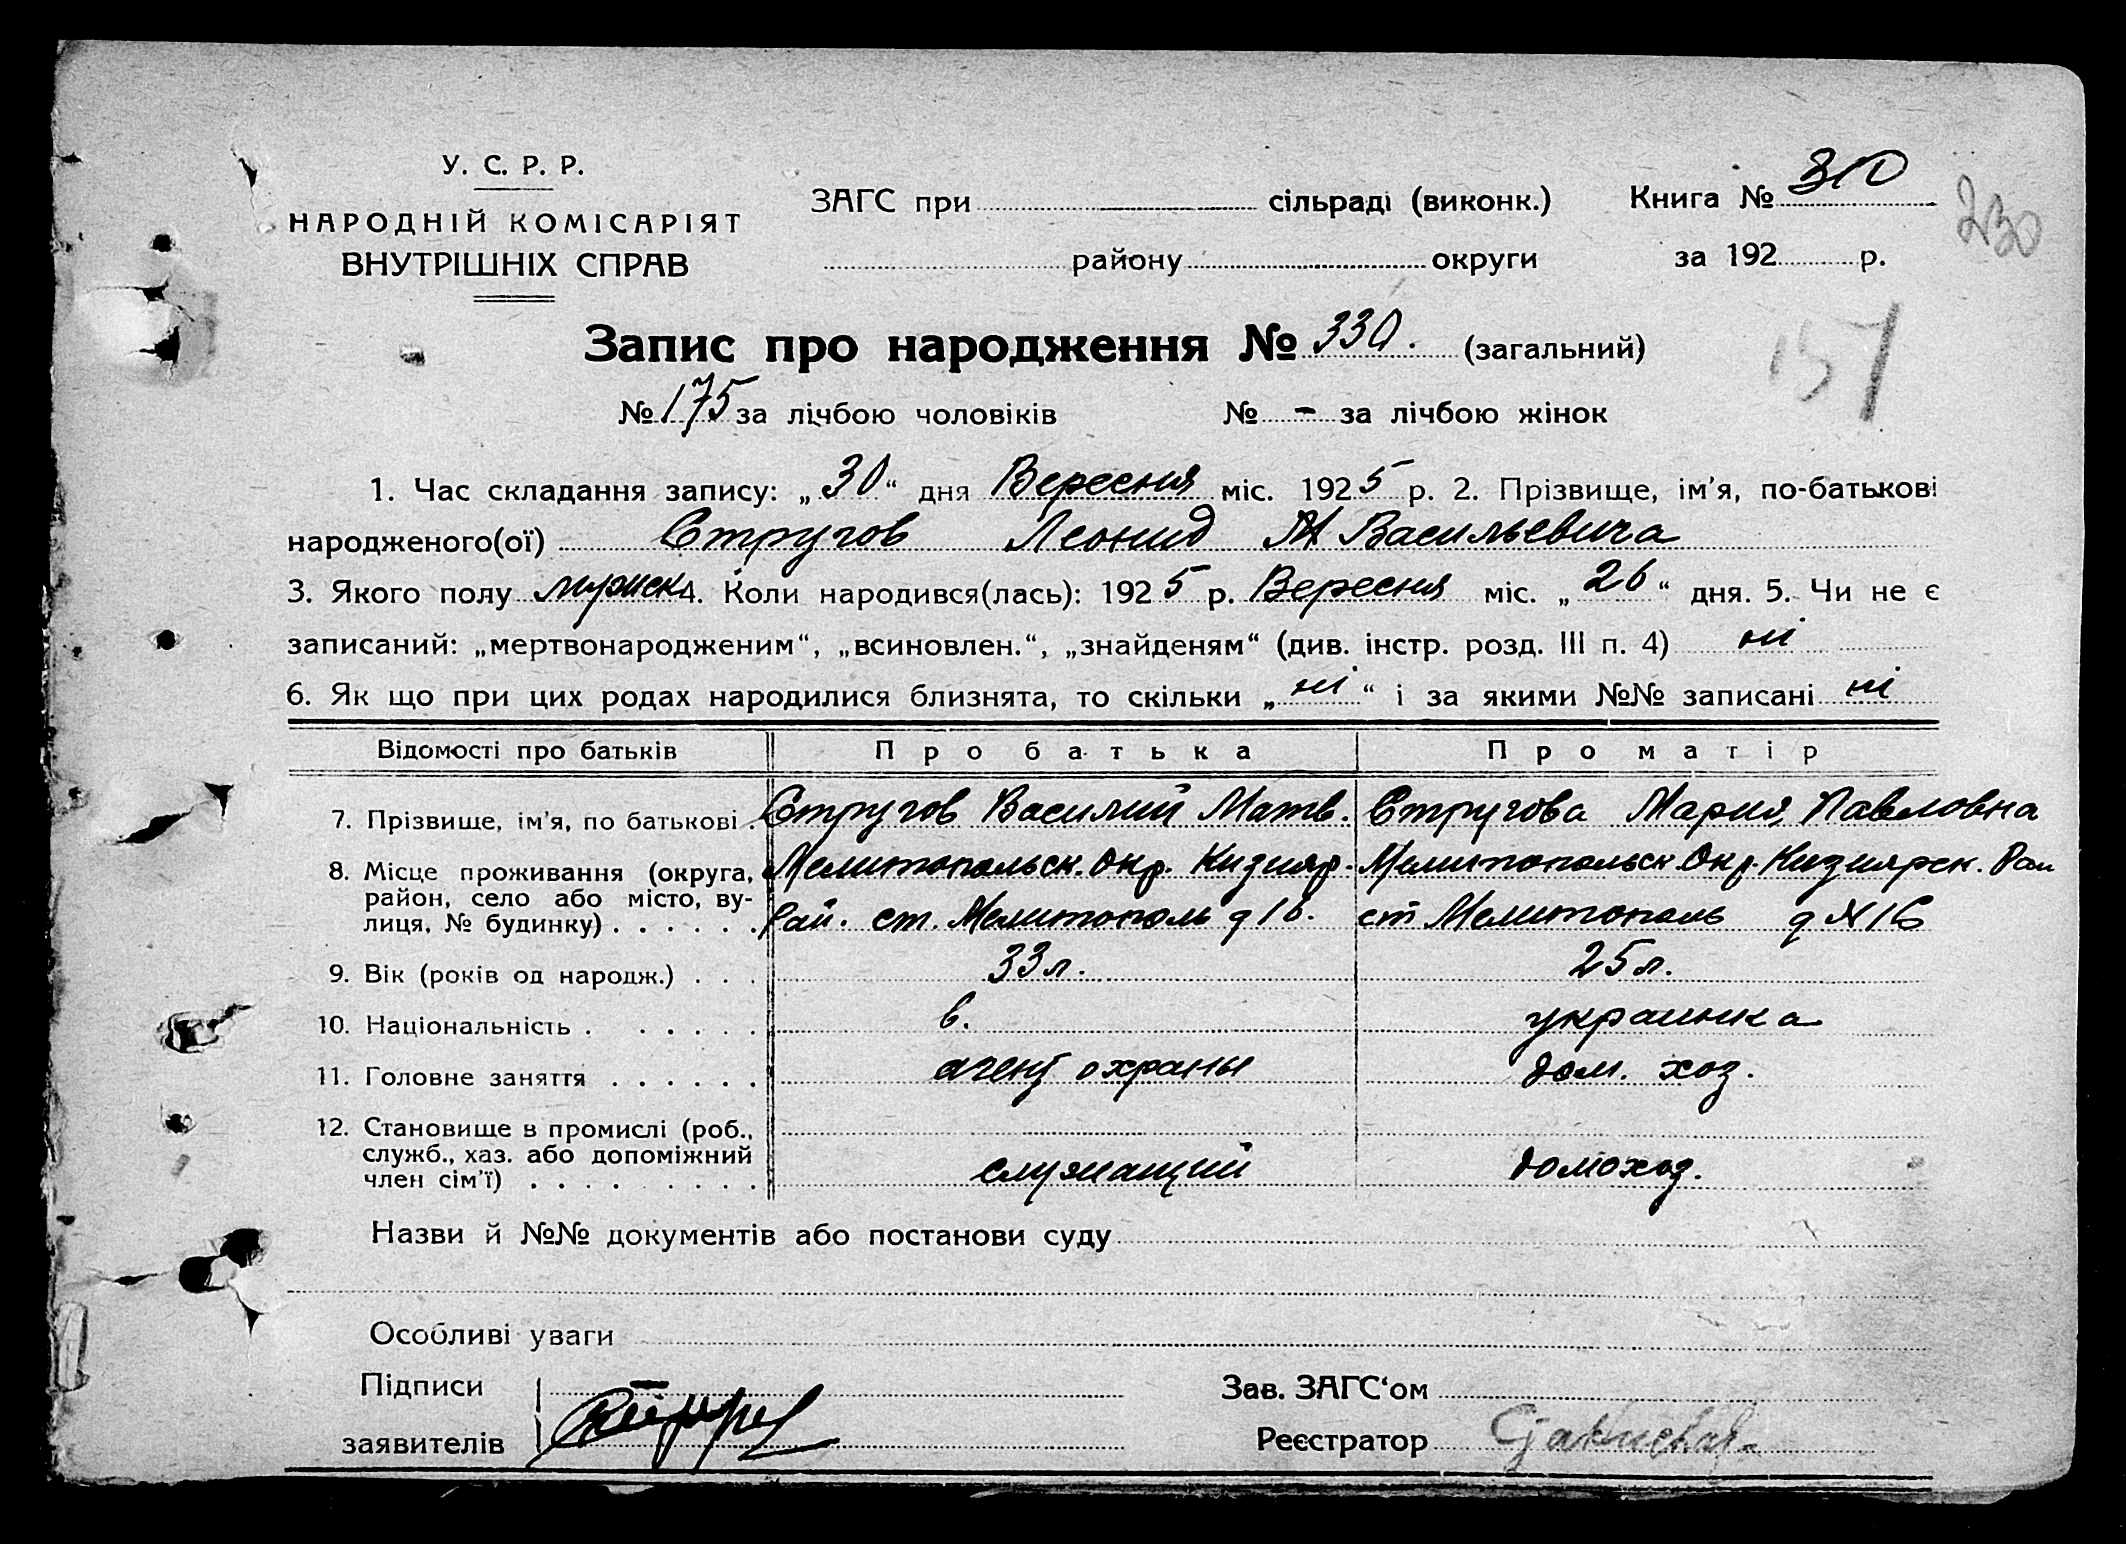 У. С. Р. Р.
НАРОДНІЙ КОМІСАРІЯТ
ВНУТРІШНІХ СПРАВ
ЗАГС при сільраді (виконк.)
району округи
Книга № 310
за 192 р.
230
157
Запис про народження № 330. (загальний)
№ 175 за лічбою чоловіків № - за лічбою жінок
1. Час складання запису: „30“ дня Вересня міс. 1925 р. 2. Прізвище, ім'я, по-батькові
народженого(ої) Стругов Леонид Васильевича
3. Якого полу мужиск 4. Коли народився(лась): 1925 р. Вересня міс. „26“ дня. 5. Чи не є
записаний: „мертвонародженим“, „всиновлен.“, „знайденям“ (див. інстр. розд. III п. 4) ні
6. Як що при цих родах народилися близнята, то скільки „ні“ і за якими №№ записані ні
Відомості про батьків Про батька Про матір
7. Прізвище, ім'я, по батькові . Стругов Василий Матв. Стругова Мария Павловна
8. Місце проживання (округа, Мелитопольск. Окр. Кизияр. Мелитопольск. Окр. Кизиярск. Рай
район, село або місто, ву-
лиця, № будинку) . . . . . . Рай. ст. Мелитополь д 16. ст Мелитополь д № 16
9. Вік (років од народж.) . . . 33 л. 25 л.
10. Національність . . . . . . в. украинка
11. Головне заняття . . . . . . агент охраны дом. хоз.
12. Становище в промислі (роб.,
служб., хаз. або допоміжний
член сім'ї) . . . . . . . . . служащий домохоз.
Назви й №№ документів або постанови суду
Особливі уваги
Підписи
заявителів
Зав. ЗАГС‘ом
Реєстратор